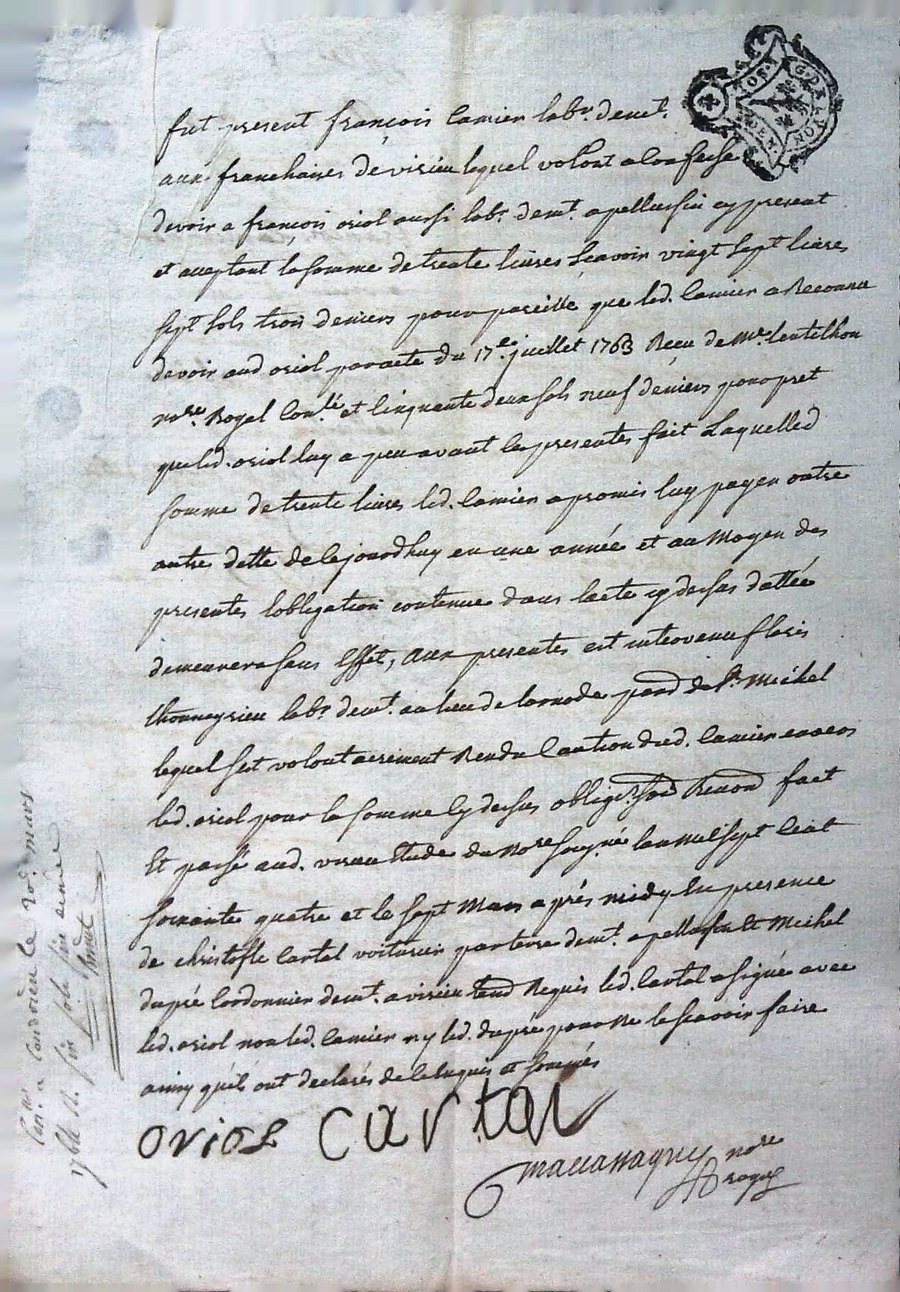 fut present françois Camier labr. demt.
aux franchises de virieu lequel volont a Confessé
devoir a françois oriol aussi labr. demt. a pellussin cy present
et acceptant la somme de trente livres Scavoir vingt Sept livres
Sept Sols trois deniers pour pareille que led. Camier a Reconnu
devoir aud oriol par acte du 17e. juillet 1763 Reçu de Me. lentilhon
nore. Royal et Cinquante deux sols neuf deniers pour pret
que led. oriol luy a peu avant les presentes fait Laquelled
somme de trente livres led. Camier a promis luy payer outre
autre dette de Cejourdhuy en une année et au Moyen des
presentes lobligation contenue dans lacte cy dessus dattée
demeurera sans Effet, aux presentes est intervenu
thomeyrieu labr. demt. au lieu de paroö de St. Michel
lequel sest volontairement Rendu Caution dud. Camier envers
led. oriol pour la somme Cy dessus oblige. Renonö fact
Et passé aud. virieu Etude du Nore soussigné lan mil sept Cent
soixante quatre et le sept Mars après midy En presence
de christofle Cartal voiturier par terre demt. a pellussin et Michel
dupré Cordonnier demt. a virieu Requis led. Cartal a signé avec
led. oriol non led. Camier ny led. dupré pour Ne le scavoir faire
ainsy quils ont declarés de ce Enquis et sommés
oriol Cartal
nore
royal
Conllé a Condrieu le 20e mars
1764 R. six sols six deniers